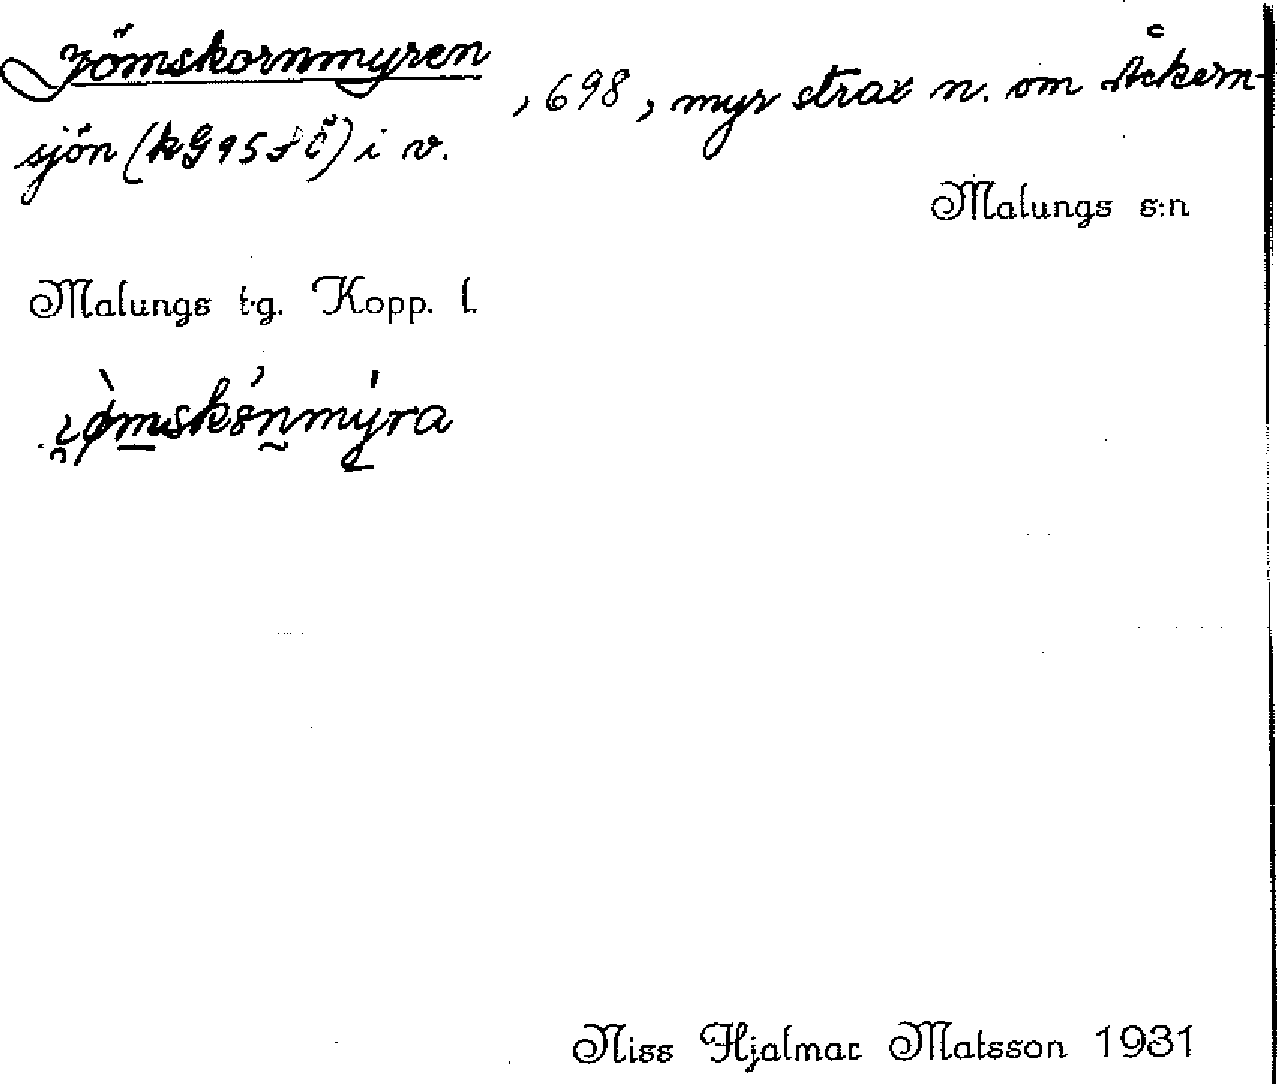 Jömskornmyren, 698, myr strax n. om Åckern-
sjön (kG95 i v.
Malungs s:n
Malungs t·g. Kopp. l.
Niss Hjalmar Matsson 1931